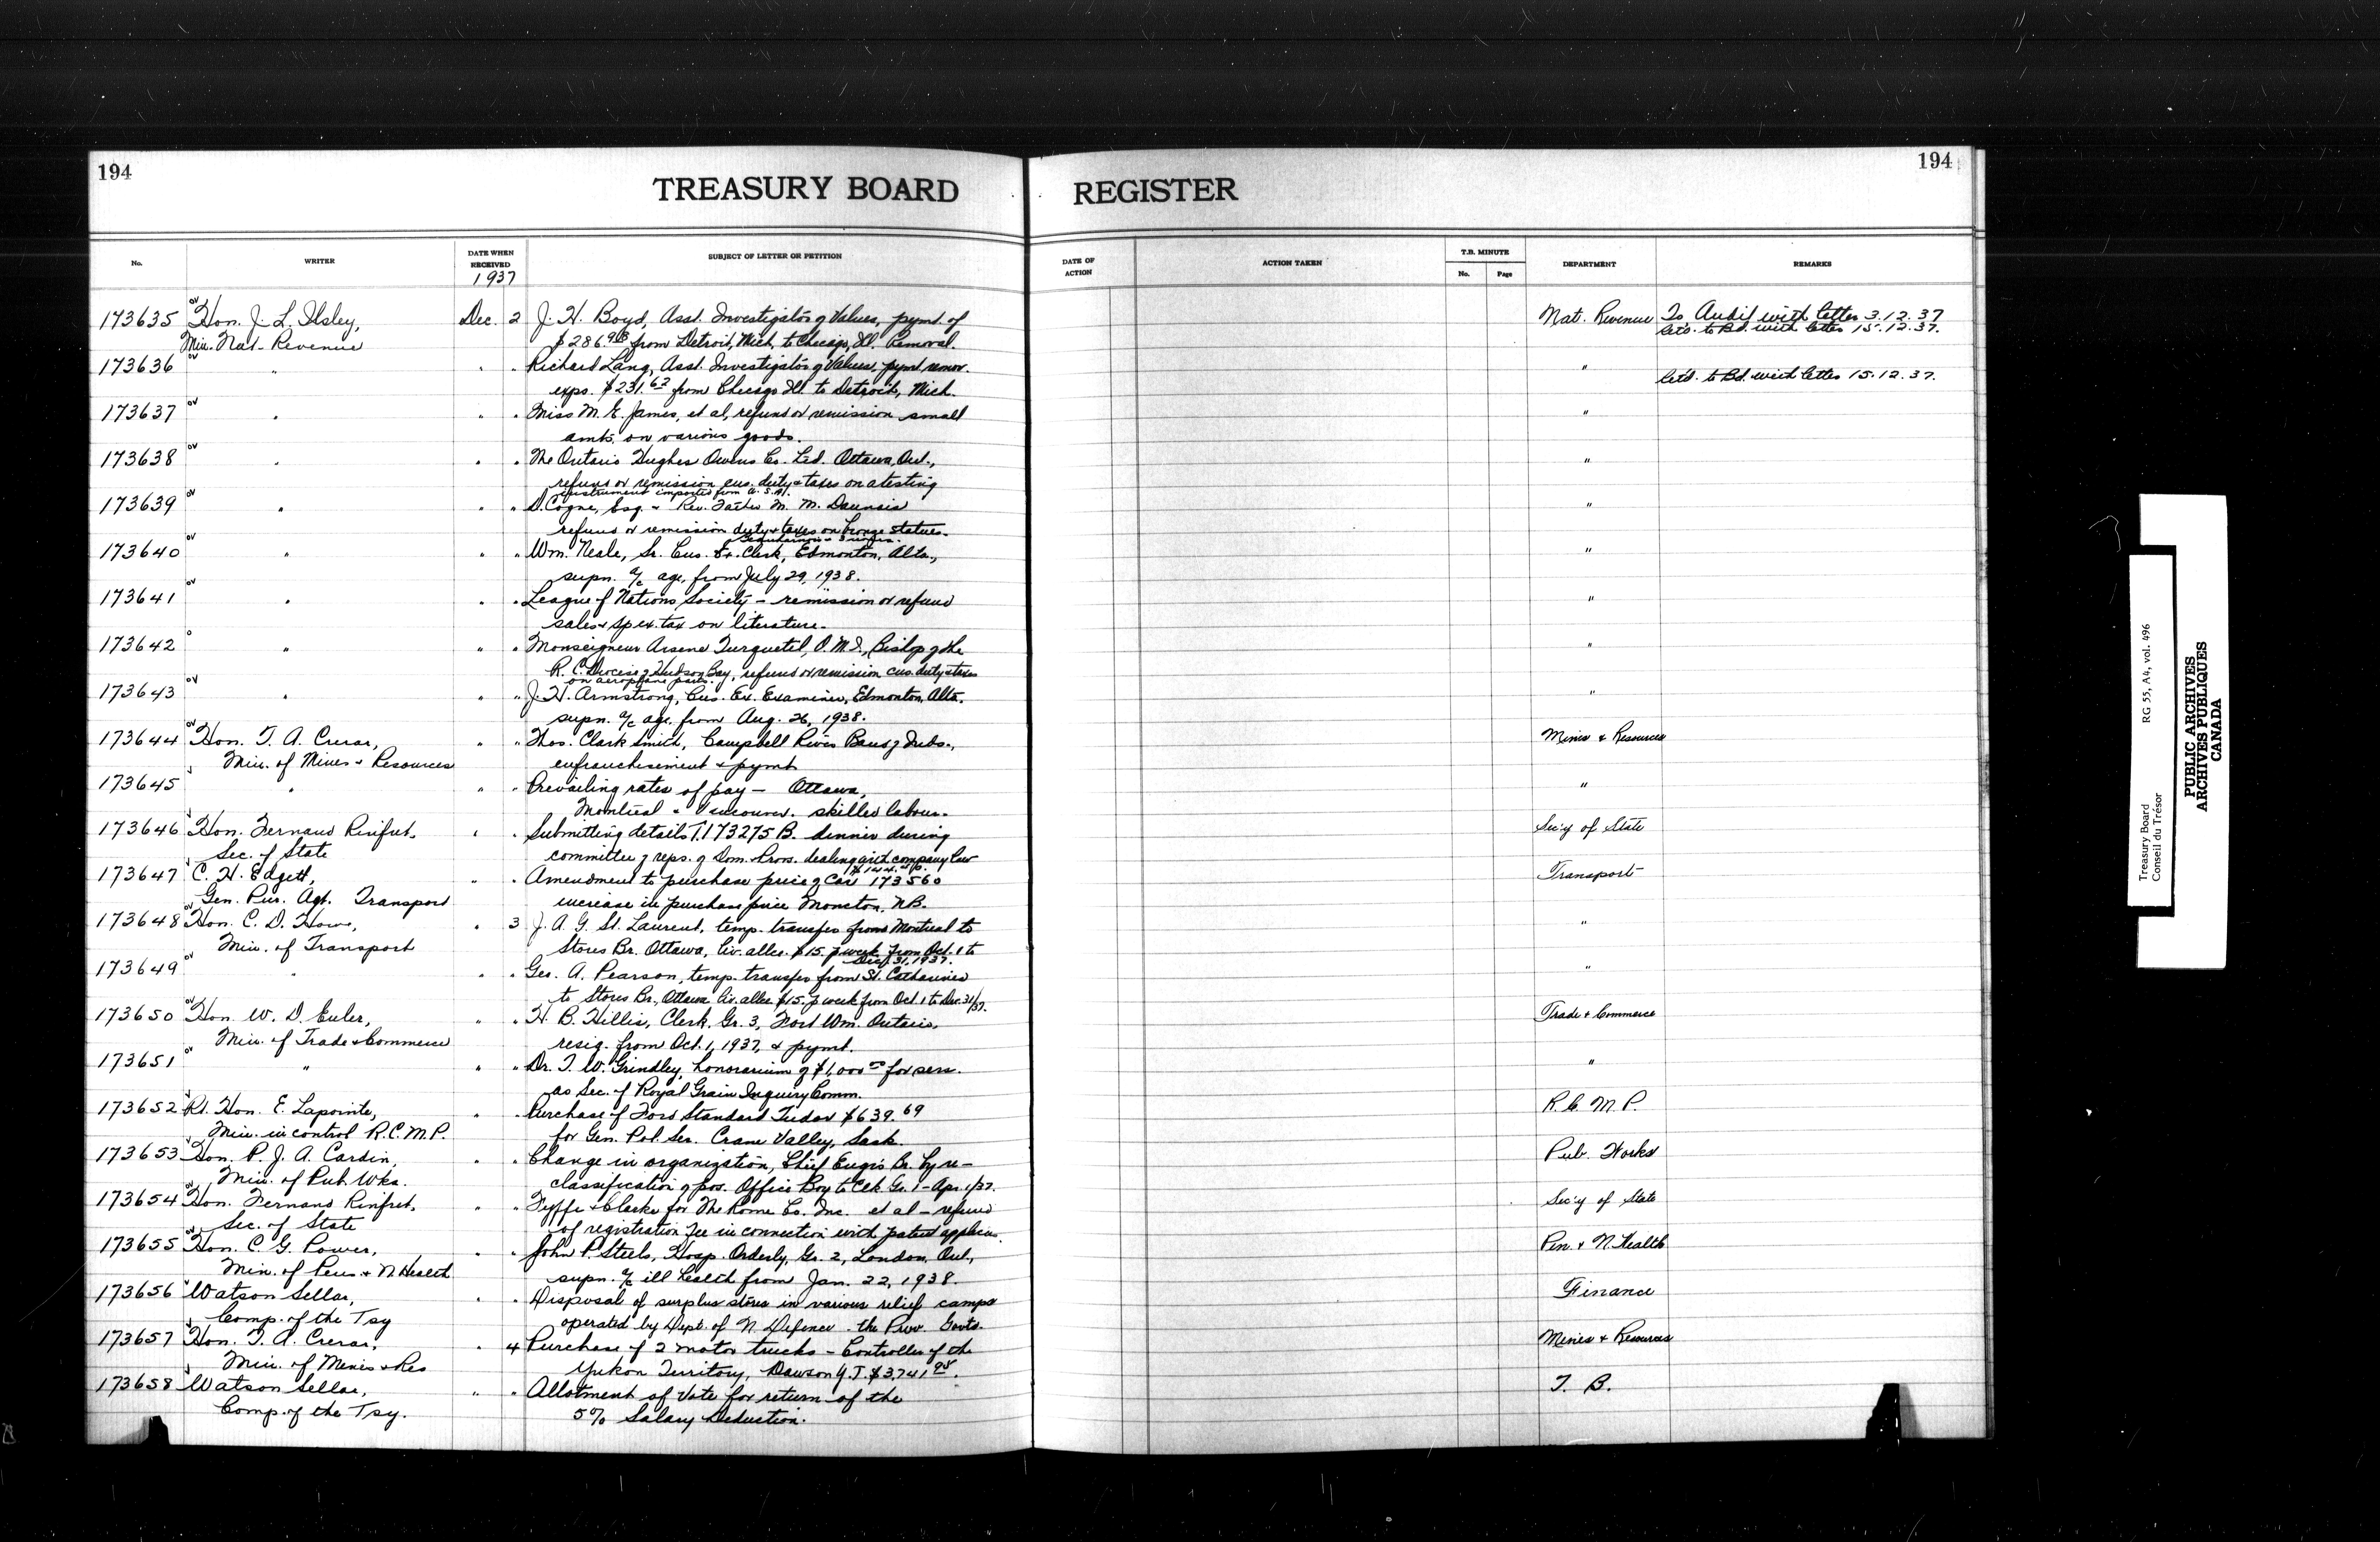 194
TREASURY BOARD REGISTER
194
No. WRITER DATE WHEN RECEIVED SUBJECT OF LETTER OR PETITION DATE OF ACTION ACTION TAKEN T.B. MINUTE No. Page DEPARTMENT REMARKS
1937
173635 ov Hon. J. L. Ilsley, Dec. 2 J. H. Boyd, Asst. Investigator of Values, pymt. of Nat. Revenue To Audit with letter 3.12.37
Min. Nat. Revenue $286.98 from Detroit, Mich. to Chicago, Ill. Removal. ret'd. to Bd. with letter 15.12.37.
173636 ov " " " Richard Lang, Asst. Investigator of Values, pymt remov. "
exps. $231.62 from Chicago Ill. to Detroit, Mich. ret'd. to Bd. with letter 15.12.37.
173637 ov " " " Miss M. E. James, et al, refund or remission small "
amts. on various goods.
173638 ov " " " The Ontario Hughes Owens Co. Ltd. Ottawa, Ont., "
refund or remission cus. duty & taxes on a testing
instrument imported from U.S.A.
173639 ov " " " D. Cogne, Esq. & Rev. Father M. M. "
refund or remission duty & taxes on bronze statues.
173640 ov " " " Wm. Neale, Sr. Cus. Ex. Clerk, Edmonton, Alta., "
supn. a/c age, from July 29, 1938.
173641 ov " " " League of Nations Society – remission or refund "
sales & sp. ex. tax on literature.
173642 o " " " Monseigneur Arsene Turquetil, O.M.I., Bishop of the "
R. C. Diocese of Hudson Bay, refund or remission cus. duty & taxes
on aeroplane parts.
173643 ov " " " J. H. Armstrong, Cus. Ex. Examiner, Edmonton, Alta. "
supn. a/c age, from Aug. 26, 1938.
173644 ov Hon. T. A. Crerar, " " Thos. Clark Smith, Campbell River Band of Inds., Mines & Resources
Min. of Mines & Resources enfranchisement & pymt
173645 " " " Prevailing rates of pay – Ottawa, "
Montreal & Vancouver. skilled labour.
173646 Hon. Fernand Rinfret, " " Submitting details T.173275 B. dinner during Sec'y of State
Sec. of State committee of reps. of Dom. & Provs. dealing with company law
173647 C. H. Edgett, " " Amendment to purchase price of Car 173560 Transport
Gen. Pur. Agt. Transport increase in purchase price Moncton, N.B.
173648 ov Hon. C. D. Howe, " 3 J. A. G. St. Laurent, temp. transfer from Montreal to "
Min. of Transport Stores Br. Ottawa, liv. allce. $15. p week from Oct. 1 to
Dec. 31, 1937.
173649 ov " " " Geo. A. Pearson, temp. transfer from St. Catharines "
to Stores Br., Ottawa liv. allce. $15. p week from Oct. 1 to Dec. 31/37.
173650 ov Hon. W. D. Euler, " " H. B. Hillis, Clerk, Gr. 3, Fort Wm. Ontario, Trade & Commerce
Min. of Trade & Commerce resig. from Oct. 1, 1937, & pymt.
173651 ov " " " Dr. T. W. Grindley, honorarium of $1,000 00 for serv. "
as Sec. of Royal Grain Inquiry Comm.
173652 Rt. Hon. E. Lapointe, " " Purchase of Ford Standard Tudor $639.69 R. C. M. P.
Min. in control R.C.M.P. for Gen. Pol. Ser. Crane Valley, Sask.
173653 Hon. P. J. A. Cardin, " " Change in organization, Chief Engrs Br. by re- Pub. Works
Min. of Pub. Wks. classification of pos. Office Boy to Clk Gr. 1 – Apr. 1/37.
173654 ov Hon. Fernand Rinfret, " " & Clarke for The Rome Co. Inc. et al – refund Sec'y of State
Sec. of State of registration fee in connection with patent applicns.
173655 ov Hon. C. G. Power, " " John P. Steele, Hosp. Orderly, Gr. 2, London, Ont., Pen. & N. Health
Min. of Pens. & N. Health supn. a/c ill health from Jan. 22, 1938.
173656 Watson Sellar, " " Disposal of surplus stores in various relief camps Finance
Comp. of the Tsy operated by Dept. of N. Defence - the Prov. Govts.
173657 Hon. T. A. Crerar, " 4 Purchase of 2 motor trucks – Controller of the Mines & Resources
Min. of Mines & Res Yukon Territory, Dawson Y.T. $3,741 98.
173658 Watson Sellar, " " Allotment of Vote for return of the T. B.
Comp. of the Tsy. 5% Salary Deduction.
Treasury Board RG 55, A4, vol. 496
Conseil du Trésor
PUBLIC ARCHIVES
ARCHIVES PUBLIQUES
CANADA